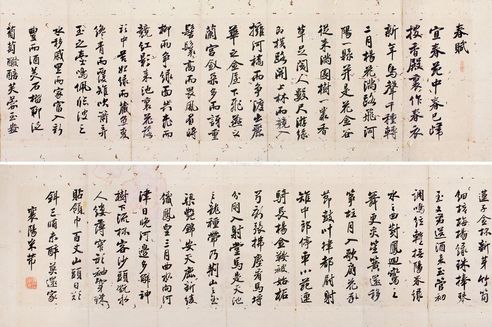 春賦
宜春苑中春已歸
披香殿裏作春衣
新年鳥聲千種囀
二月楊花滿路飛河
陽一縣并是花金谷
從來滿園樹一叢香
草足礙人數尺游絲
即橫路開上林而競入
擁河橋而爭渡出麗
華之金屋下飛燕之
蘭宮釵朵多而訝重
髻鬟高而畏風眉將
柳而爭綠面共桃而
競紅影來池裏花落
衫中苔始綠而藏魚麥
纔青而覆雉吹簫弄
玉之臺鳴佩淩波之
水移戚里而家富入新
豐而酒美石榴聊泛
葡萄醱醅芙蓉玉盌
蓮子金杯新芽竹筍
細核楊梅綠珠捧琴
至文君送酒來玉管初
調鳴弦暫撫陽春淥
水之曲對鳳迴鸞之
舞更炙笙簧還移
箏柱月入歌扇花承
節鼓叶律都尉射
雉中郎停車小苑連
騎長楊金鞍始被柘
弓新張拂塵看馬埒
分朋入射堂馬是天池
之龍種帶乃荊山之玉
梁艷錦安天鹿新綾
織鳳皇三月曲水向河
津日晚河邊多解神
樹下流杯客沙頭渡水
人鏤薄窄衫袖穿珠
帖領巾百丈山頭日欲
斜三晡未醉莫還家
襄陽米芾